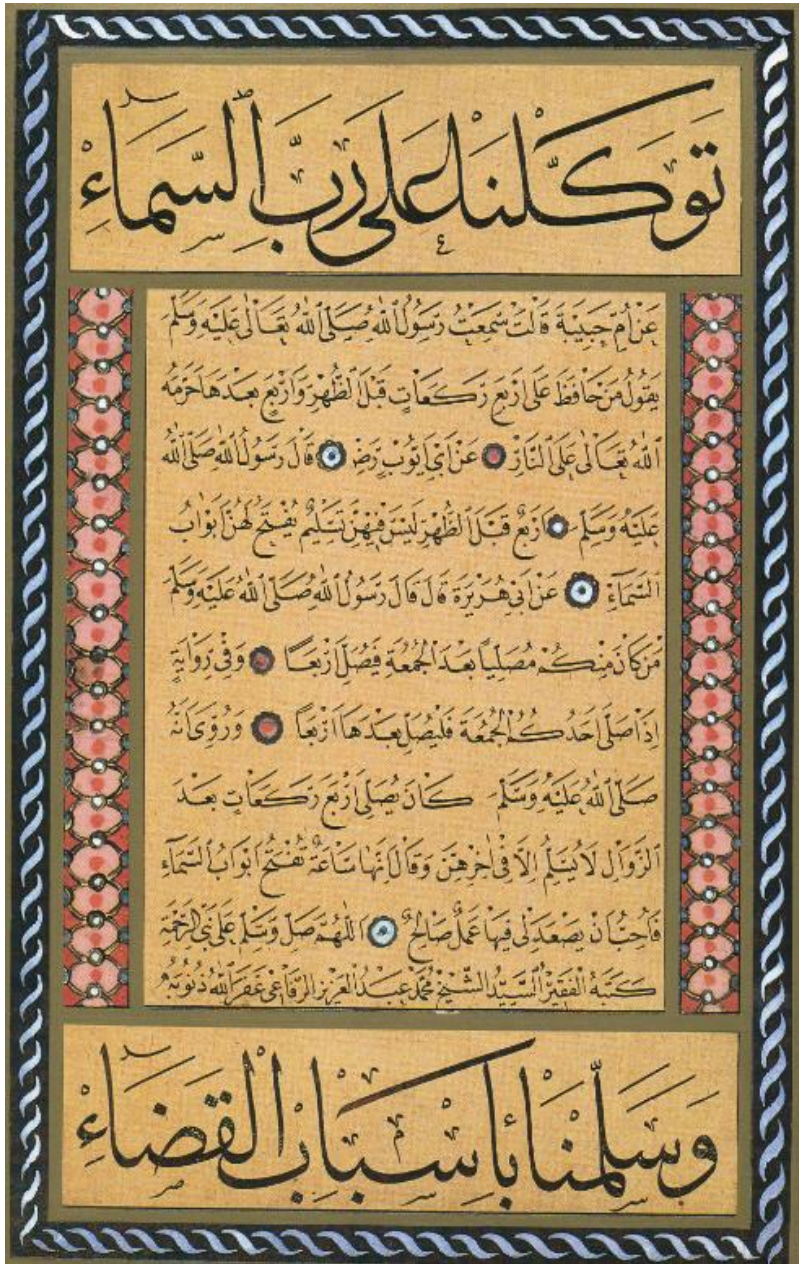 توكلنا على رب السماء
عن أم حبيبة قالت سمعت رسول الله صلى الله تعالى عليه وسلم
يقول من حافظ على اربع ركعات قبل الظهر واربع بعدها حرمه
الله تعالى على النار عن ابي ايوب رض قال رسول الله صلى الله
عليه وسلم اربع قبل الظهر ليس فيهن تسليم يفتح لهن ابواب
السماء عن ابي هريرة قال قال رسول الله صلى الله عليه وسلم
من كان منكم مصليا بعد الجمعة فصل اربعا وفي رواية
اذا صلى احدكم الجمعة فليصل بعدها اربعا وروي انه
صلى الله عليه وسلم كان يصلي اربع ركعات بعد
الزوال لا يسلم الا في اخرهن وقال انها ساعة تفتح ابواب السماء
فاحب ان يصعد لي فيها عمل صالح اللهم صل وسلم على نبي الرحمة
كتبه الفقير السيد الشيخ محمد عبد العزيز الرفاعي غفر الله ذنوبه
وسلمنا بأسباب القضاء